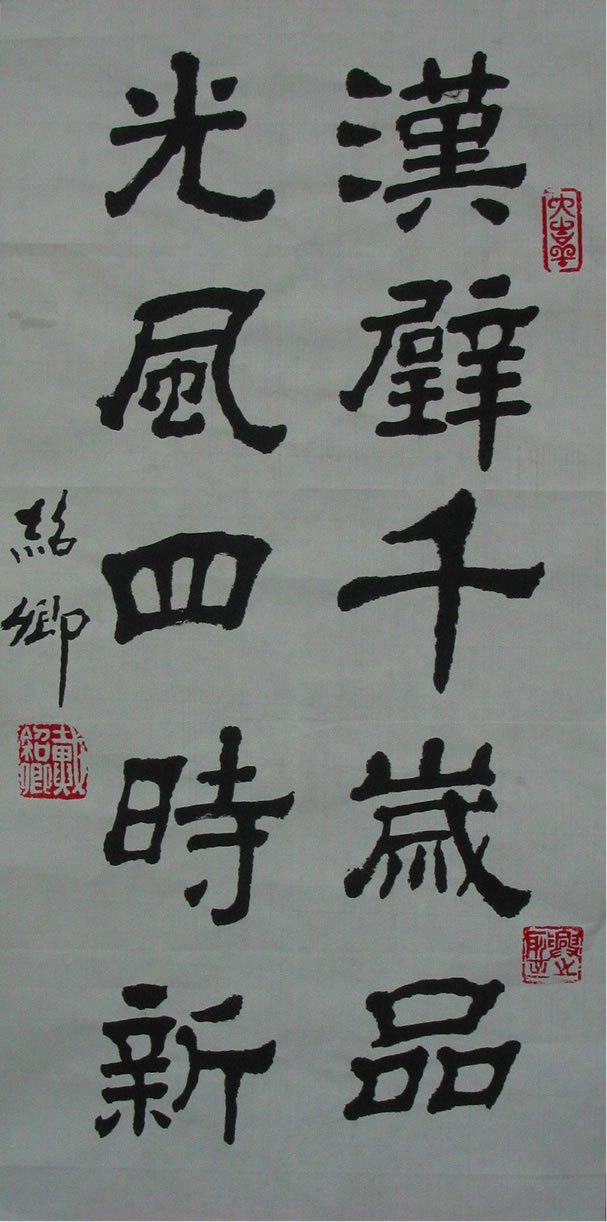 漢壁千歲品
光風四時新
紹卿
戴紹卿